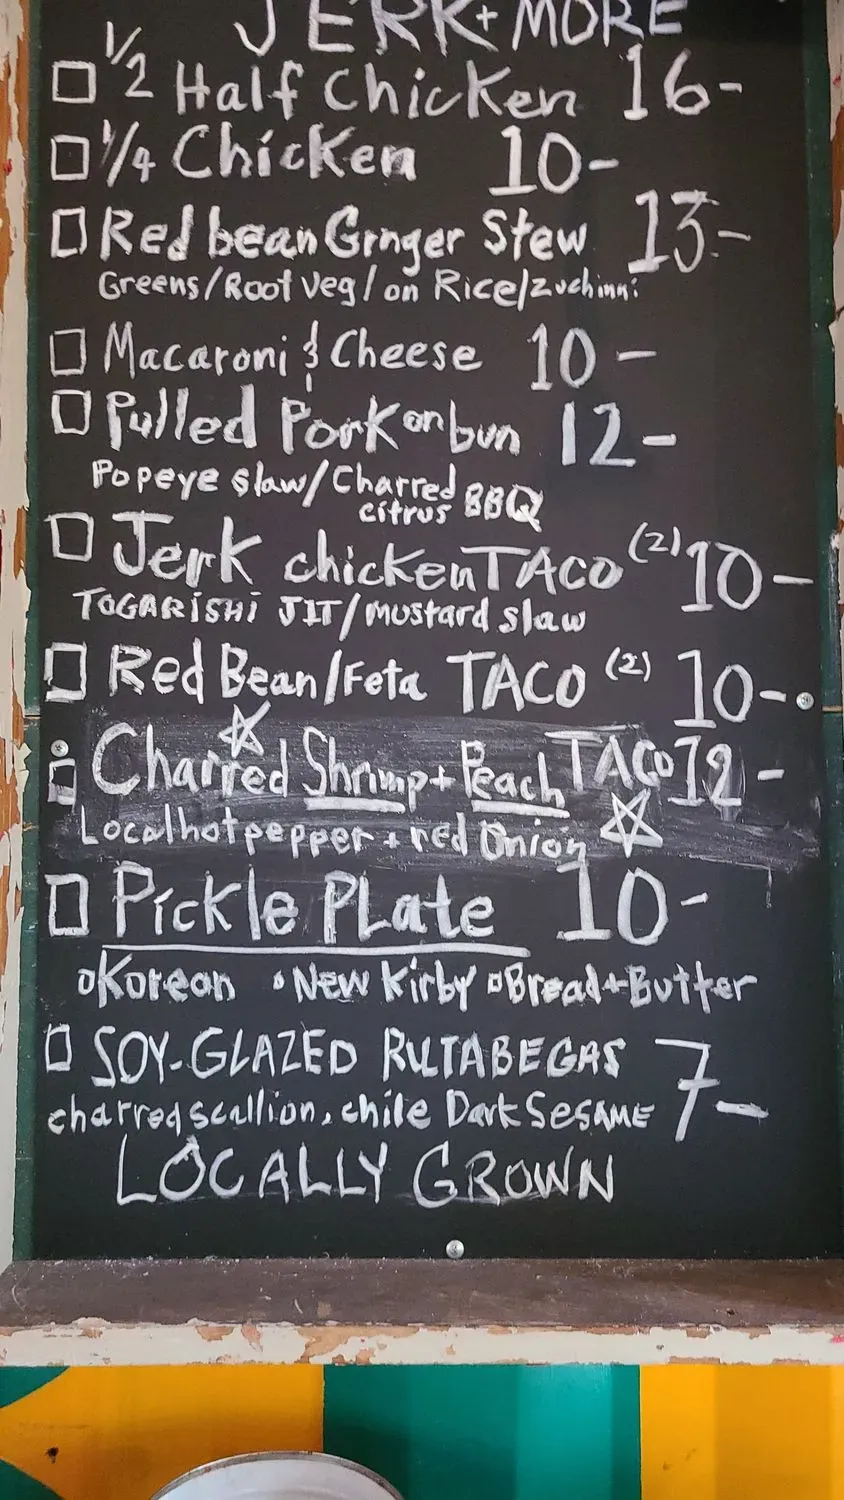 JERK + MORE
1/2 Half Chicken 16-
1/4 Chicken 10-
Red bean Ginger Stew 13-
Greens/Root veg/on Rice/zuchinni
Macaroni & Cheese 10-
Pulled Pork on bun 12-
Popeye slaw/Charred citrus BBQ
Jerk chicken TACO (2) 10-
TOGARISHI JIT/mustard slaw
Red Bean/Feta TACO (2) 10-
Charred Shrimp + Peach TACO 12-
Local hot pepper + red Onion
Pickle PLate 10-
Korean New Kirby Bread + Butter
SOY-GLAZED RUTABEGAS 7-
charred scallion, chile Dark SESAME
LOCALLY GROWN